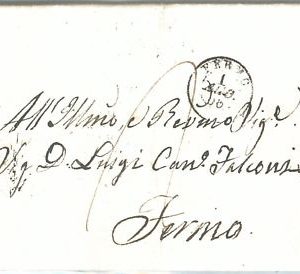 FERMO
1
All'Illmo, e Revmo Sigr.
Sig. D. Luigi Can.o Falconi
Fermo